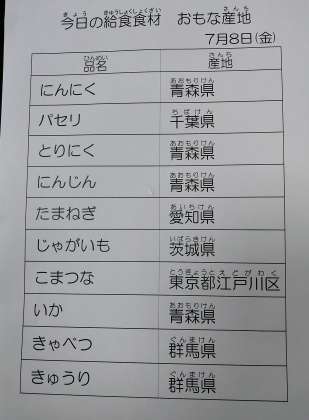 今日の給食食材　おもな産地
7月8日(金)
品名 産地
にんにく 青森県
パセリ 千葉県
とりにく 青森県
にんじん 青森県
たまねぎ 愛知県
じゃがいも 茨城県
こまつな 東京都江戸川区
いか 青森県
きゃべつ 群馬県
きゅうり 群馬県